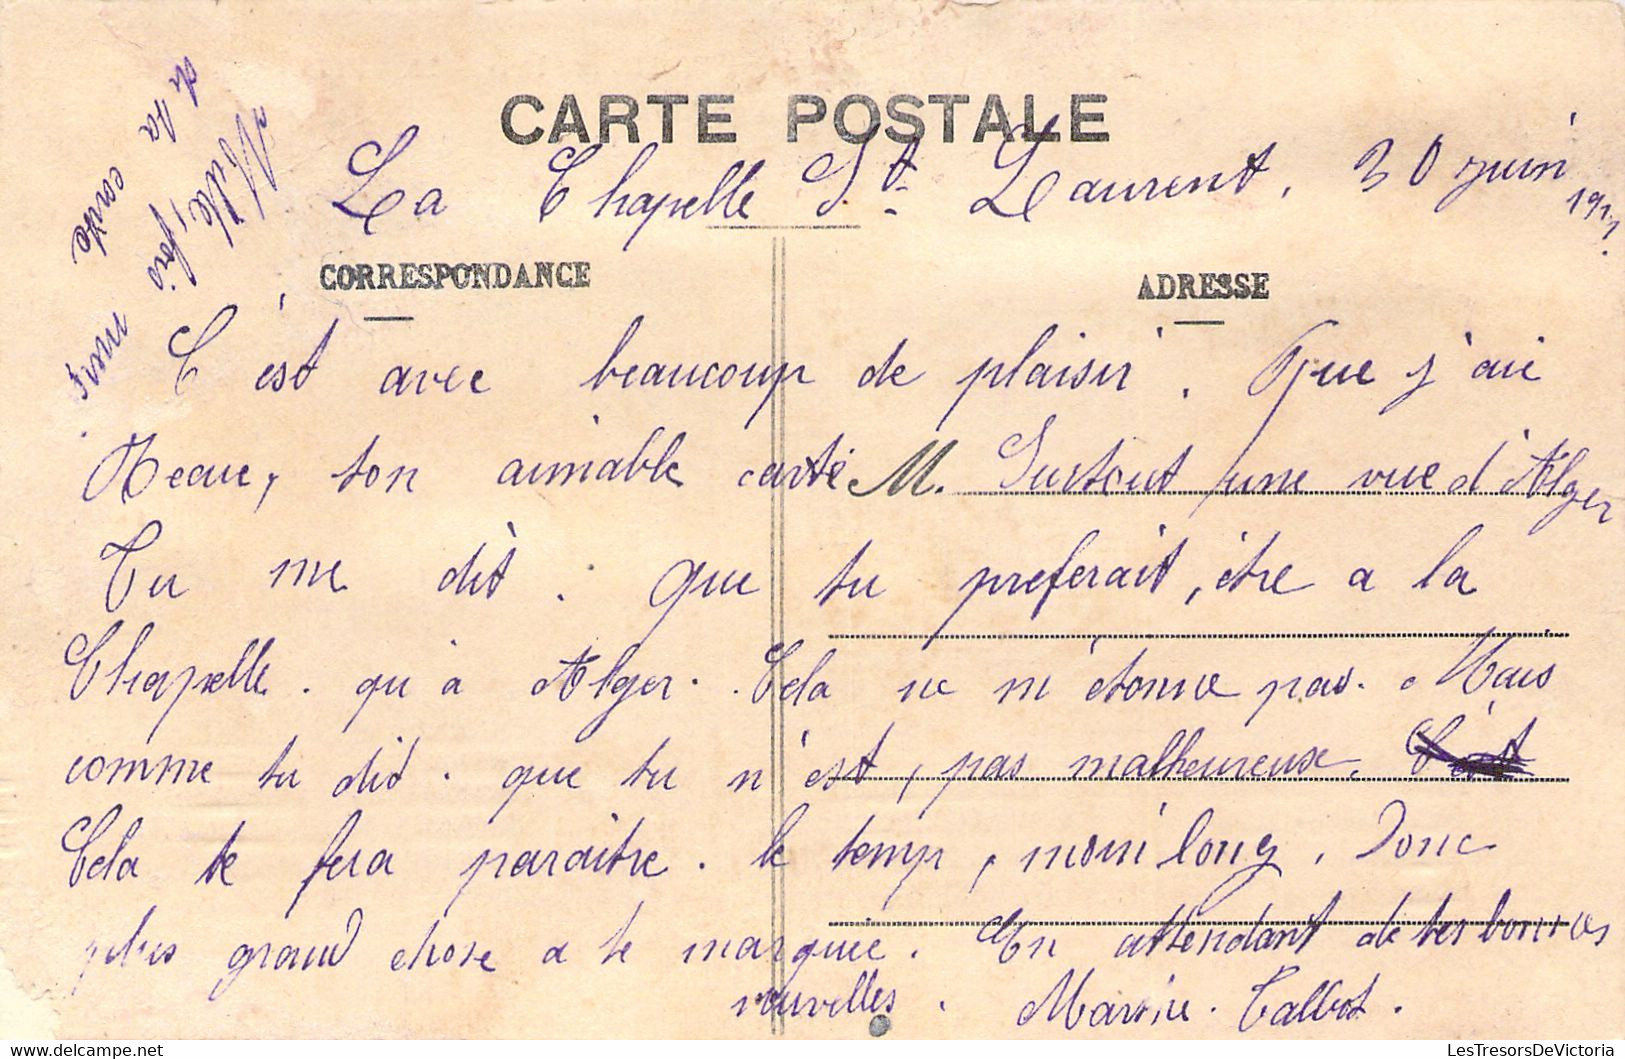 CARTE POSTALE
La Chapelle St Laurent, 30 juin
CORRESPONDANCE
ADRESSE
Mille fois
de ta
C'est avec beaucoup de plaisir. Que j'aie
Recue, ton aimable carte M. Surtout une vue d'Alger
Tu me dit : que tu preferait, être a la
Chapelle. qu'à Alger. Cela ne m'étonne pas. Mais
comme tu dit. que tu n'est, pas malheureuse. C'est
Cela te fera paraitre. le temp, moin long. Donc
plus grand chose a te marquie. En attendant de tes bonnes
nouvelles. Marie. Talbot.
LesTresorsDeVictoria.com